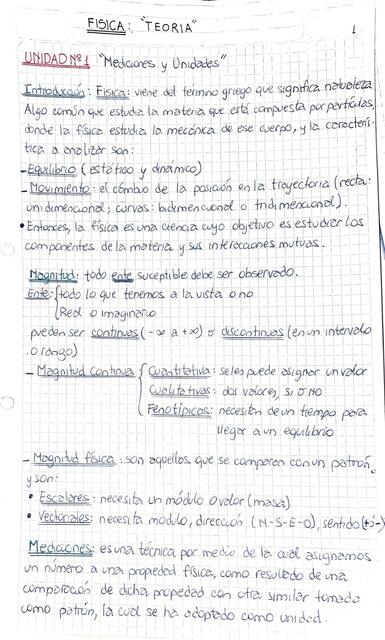 FISICA: "TEORIA"
1
UNIDAD Nº1 "Mediciones y Unidades"
Introducción: Fisica: viene del termino griego que significa naturaleza
Algo común que estudia la materia que está compuesta por partículas,
donde la física estudia la mecánica de ese cuerpo, y la caracterís-
tica a analizar son:
- Equilibrio (estático y dinámico)
- Movimiento: el cambio de la posición en la trayectoria (recta:
unidimencional; curvas: bidimencional o tridimencional).
• Entonces, la física es una ciencia cuyo objetivo es estudiar los
componentes de la materia y sus interacciones mutuas.
Magnitud: todo ente suceptible debe ser observado.
Ente: {todo lo que tenemos a la vista o no
{Real o imaginario
pueden ser continuas (-∞ a +∞) o discontinuas (en un intervalo
o rango)
- Magnitud continua { Cuantitativa: se les puede asignar un valor
Cualitativas: dos valores, si o no
Fenotípicos: necesitan de un tiempo para
llegar a un equilibrio
- Magnitud física: son aquellos que se comparan con un patrón,
y son:
• Escalares: necesita un módulo o valor (masa)
• Vectoriales: necesita modulo, dirección (N-S-E-O), sentido (+ó-)
Mediciones: es una técnica por medio de la cual asignamos
un número a una propiedad física, como resultado de una
comparación de dicha propiedad con otra similar tomada
como patrón, la cual se ha adoptado como unidad.